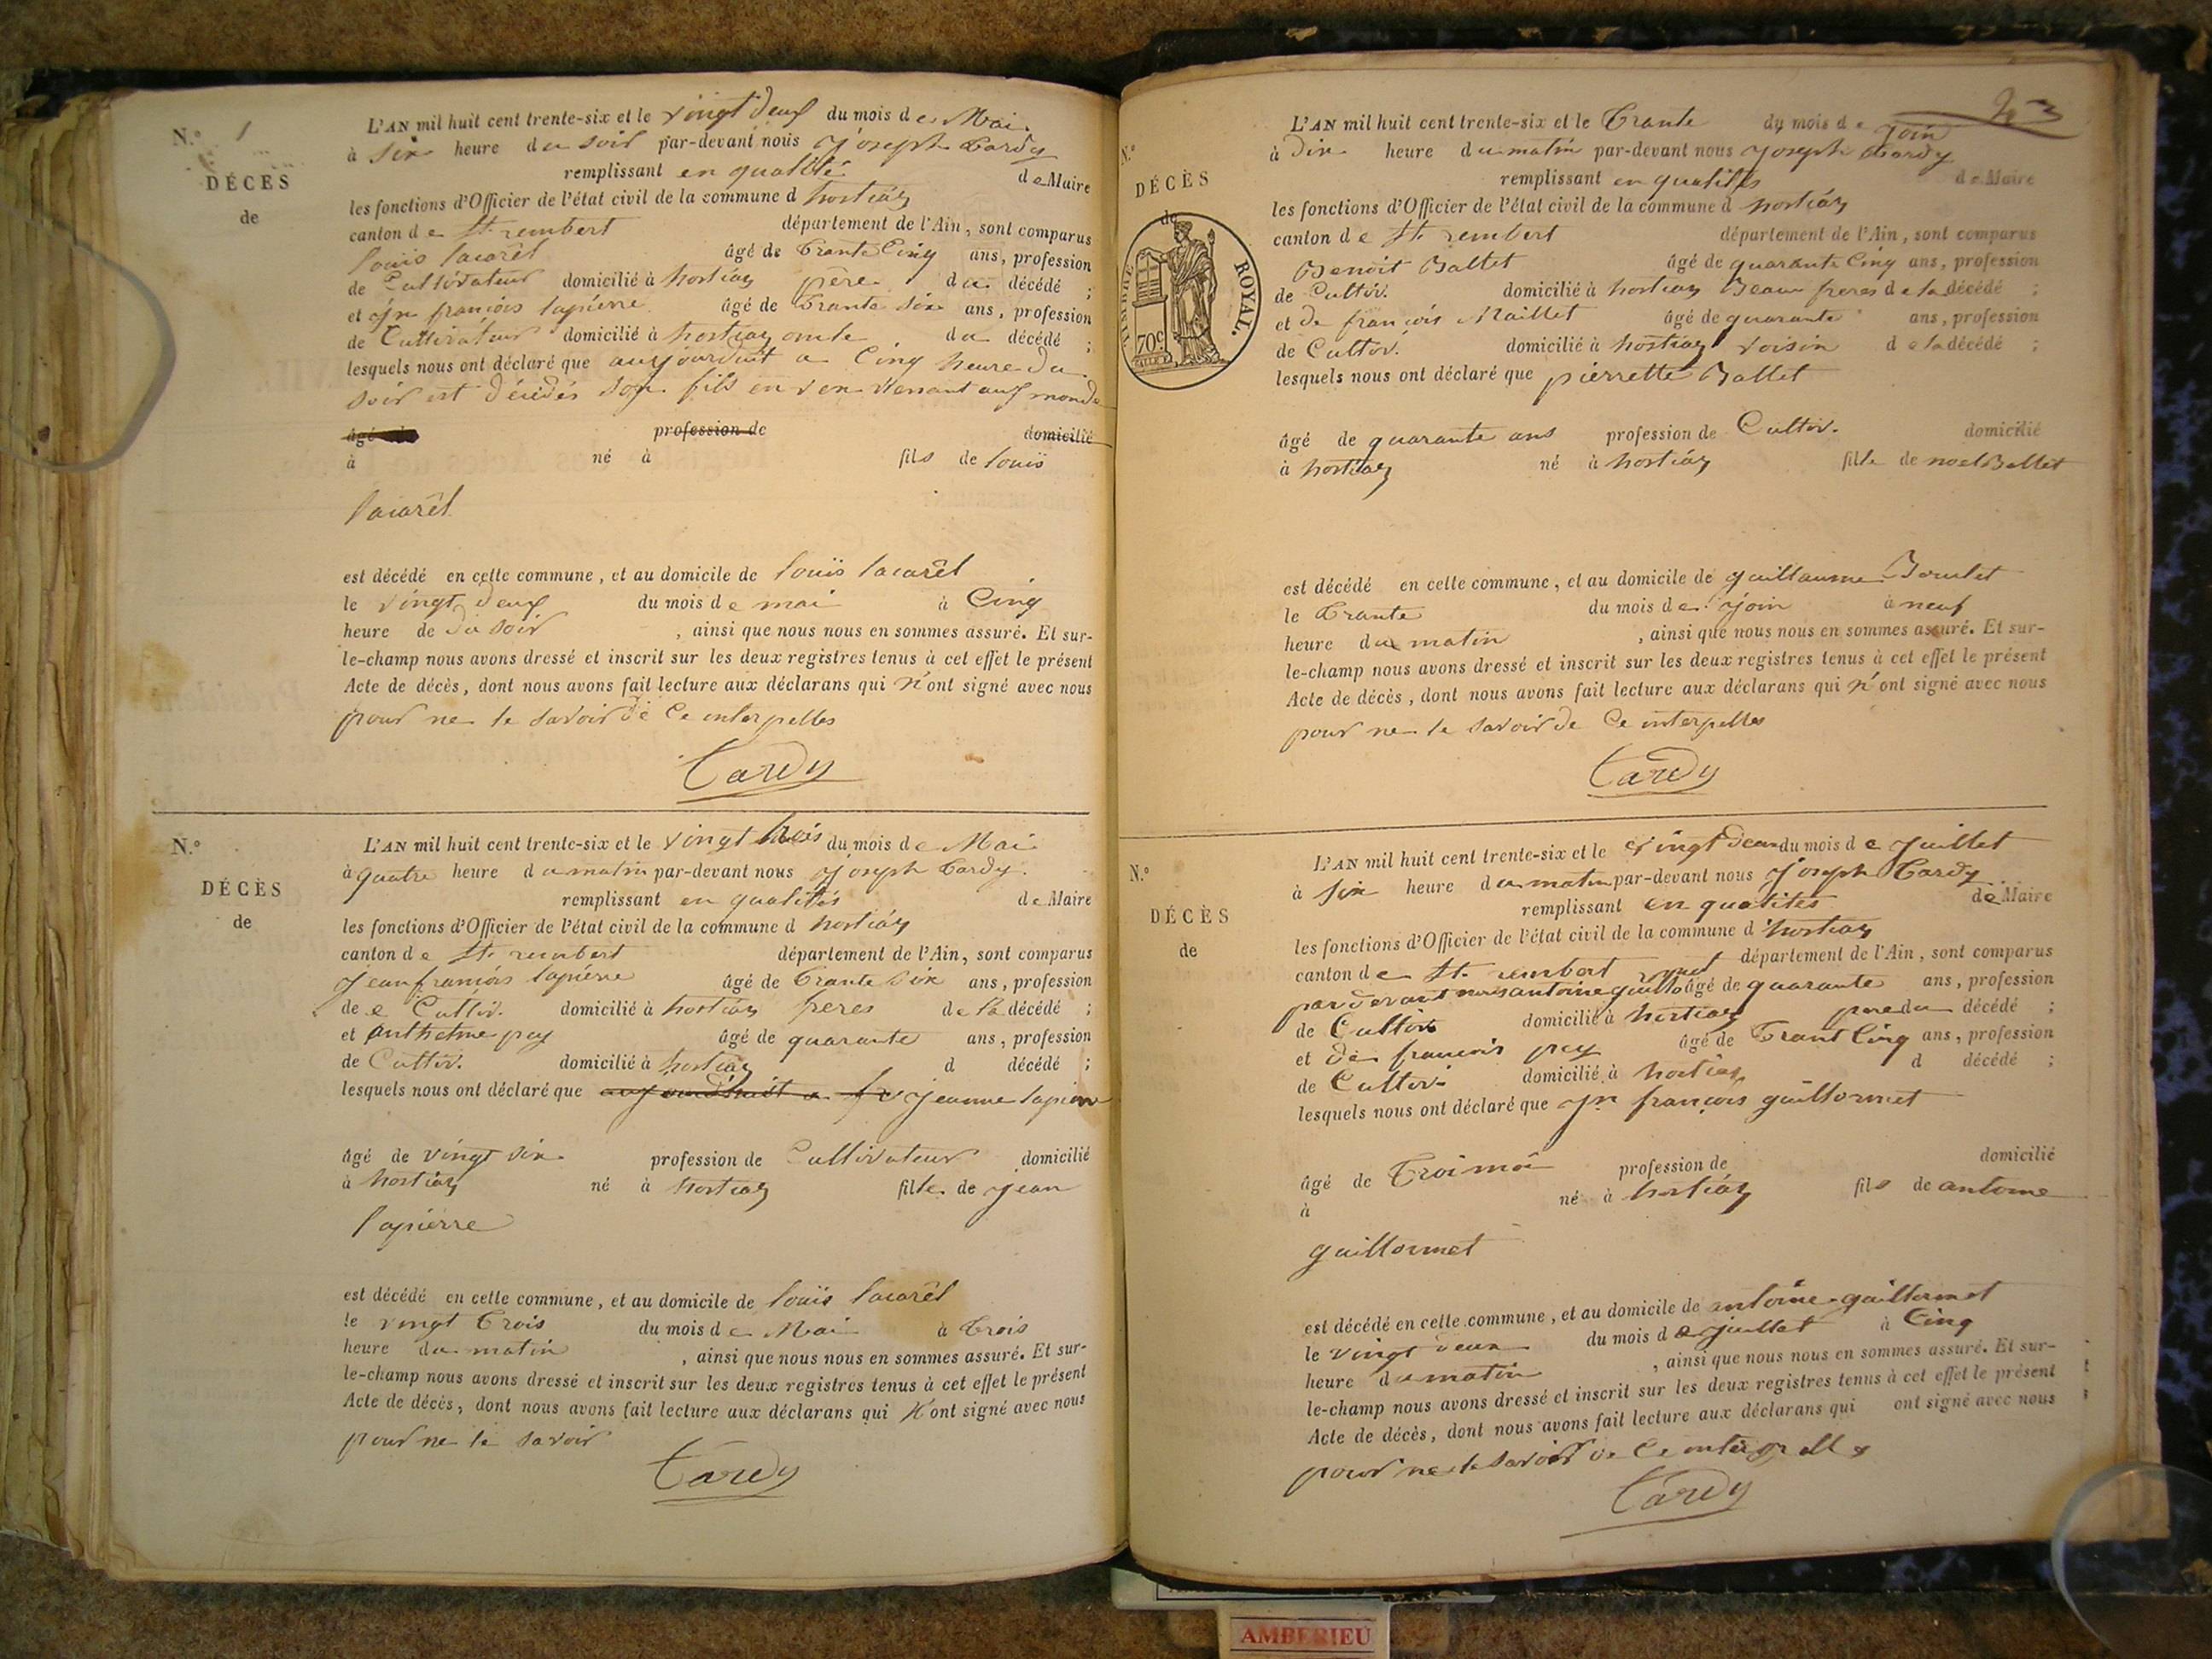 N.º 1
DÉCÈS
de
L'AN mil huit cent trente-six et le vingt deux du mois de Mai
à six heure du soir par-devant nous joseph tardy
remplissant en qualité de Maire
les fonctions d'Officier de l'état civil de la commune d hostiaz
canton de St. rembert département de l'Ain, sont comparus
louis lacarêl âgé de trante Cinq ans, profession
de Cultivateur domicilié à hostiaz père du décédé ;
et jn françois lapierre âgé de trante six ans, profession
de Cultivateur domicilié à hostiaz oncle du décédé ;
lesquels nous ont déclaré que aujourduit a Cinq heure du
soir est décédés son fils en venant aux monde
âgé profession de domicilié
à né à fils de louis
lacarêl
est décédé en cette commune, et au domicile de louis lacarêl
le vingt deux du mois de mai à Cinq
heure de du soir , ainsi que nous nous en sommes assuré. Et sur-
le-champ nous avons dressé et inscrit sur les deux registres tenus à cet effet le présent
Acte de décès, dont nous avons fait lecture aux déclarans qui n'ont signé avec nous
pour ne le savoir de Ce interpelles
tardy
N.º
DÉCÈS
de
L'AN mil huit cent trente-six et le vingt trois du mois de Mai
à quatre heure du matin par-devant nous joseph tardy
remplissant en qualités de Maire
les fonctions d'Officier de l'état civil de la commune d hostiaz
canton de St. rembert département de l'Ain, sont comparus
jean françois lapierre âgé de trante six ans, profession
de Cultiv. domicilié à hostiaz freres de la décédé ;
et anthelme pey âgé de quarante ans, profession
de Cultiv. domicilié à hostiaz d décédé ;
lesquels nous ont déclaré que aujourdhuit a jeanne lapierre
âgé de vingt six profession de Cultivateur domicilié
à hostiaz né à hostiaz fille de jean
lapierre
est décédé en cette commune, et au domicile de louis lacarêl
le vingt trois du mois de Mai à trois
heure du matin , ainsi que nous nous en sommes assuré. Et sur-
le-champ nous avons dressé et inscrit sur les deux registres tenus à cet effet le présent
Acte de décès, dont nous avons fait lecture aux déclarans qui n'ont signé avec nous
pour ne le savoir
tardy
23
N.º
DÉCÈS
de
TIMBRE ROYAL.
70 c.
L'AN mil huit cent trente-six et le trante du mois de join
à dix heure du matin par-devant nous joseph tardy
remplissant en qualités de Maire
les fonctions d'Officier de l'état civil de la commune d hostiaz
canton de St. rembert département de l'Ain, sont comparus
Benoit Ballet âgé de quarante Cinq ans, profession
de Cultiv. domicilié à hostiaz Beau freres de la décédé ;
et de françois Maillet âgé de quarante ans, profession
de Cultiv. domicilié à hostiaz voisin de la décédé ;
lesquels nous ont déclaré que pierrette Ballet
âgé de quarante ans profession de Cultiv. domicilié
à hostiaz né à hostiaz fille de noel Ballet
est décédé en cette commune, et au domicile de guillaume
le trante du mois de join à neuf
heure du matin , ainsi que nous nous en sommes assuré. Et sur-
le-champ nous avons dressé et inscrit sur les deux registres tenus à cet effet le présent
Acte de décès, dont nous avons fait lecture aux déclarans qui n'ont signé avec nous
pour ne le savoir de Ce interpelles
tardy
N.º
DÉCÈS
de
L'AN mil huit cent trente-six et le vingt deux du mois de juillet
à six heure du matin par-devant nous joseph tardy
remplissant en qualités de Maire
les fonctions d'Officier de l'état civil de la commune d hostiaz
canton de St. rembert département de l'Ain, sont comparus
par devant nous antoine guillormet âgé de quarante ans, profession
de Cultiv domicilié à hostiaz pere du décédé ;
et de françois pey âgé de trant Cinq ans, profession
de Cultiv. domicilié à hostiaz d décédé ;
lesquels nous ont déclaré que jn françois guillormet
âgé de troi moi profession de domicilié
à né à hostiaz fils de antoine
guillormet
est décédé en cette commune, et au domicile de antoine guillormet
le vingt deux du mois de juillet à Cinq
heure du matin , ainsi que nous nous en sommes assuré. Et sur-
le-champ nous avons dressé et inscrit sur les deux registres tenus à cet effet le présent
Acte de décès, dont nous avons fait lecture aux déclarans qui ont signé avec nous
pour ne le savoir de Ce interpelles
tardy
AMBERIEU